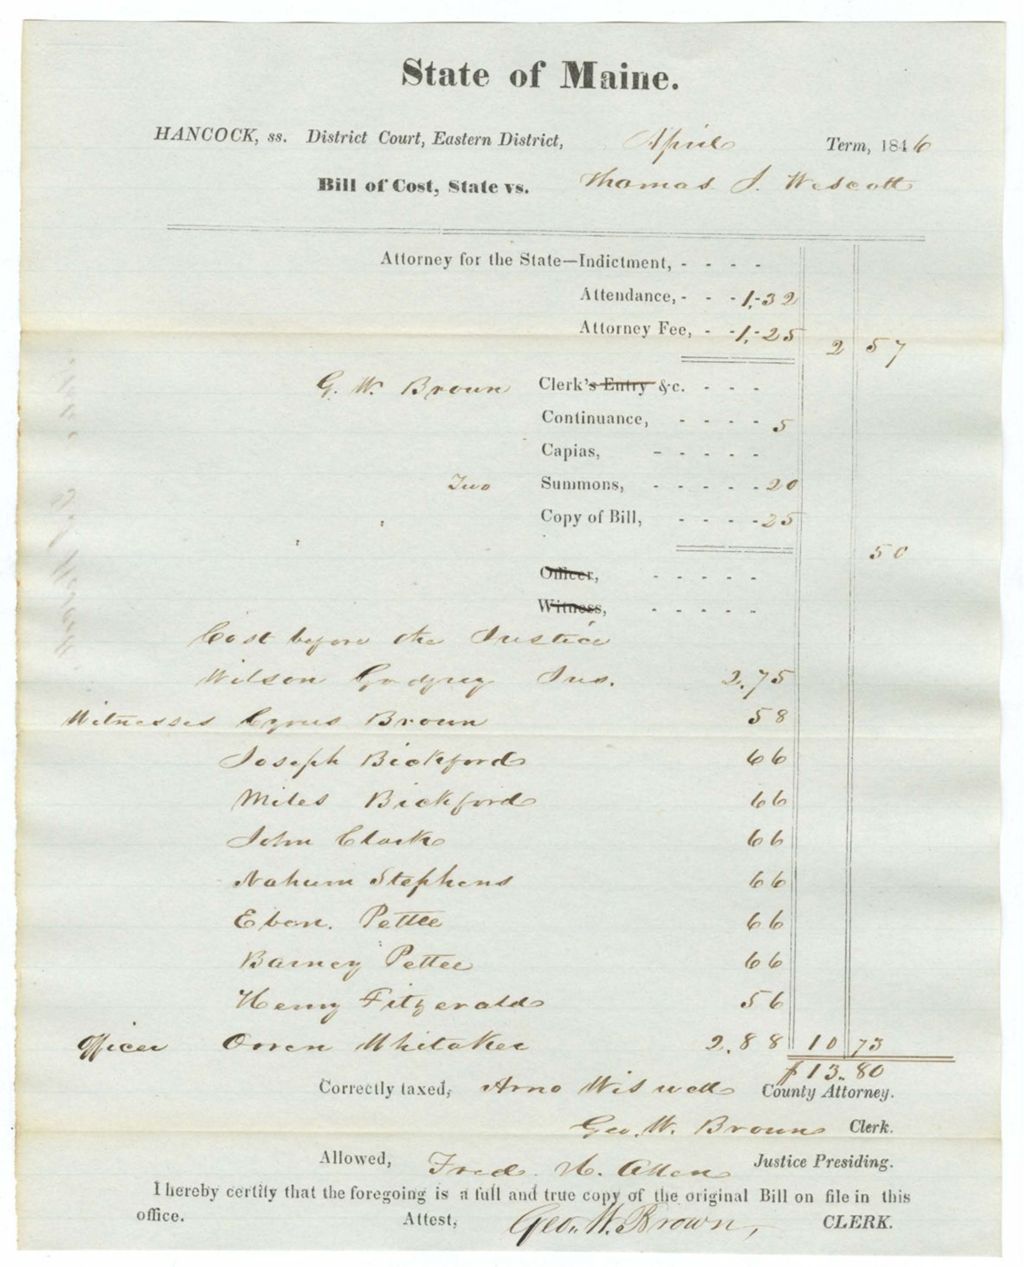 State of Maine.
HANCOCK, ss. District Court, Eastern District, April Term, 1846
Bill of Cost, State vs. Thomas J. Wescott
Attorney for the State—Indictment, - - - -
Attendance, - - - 1,-32
Attorney Fee, - - 1,-25 2 57
G. W. Brown Clerk's Entry &c. - - -
Continuance, - - - - 5
Capias, - - - - -
Two Summons, - - - - - 20
Copy of Bill, - - - - 25
50
Officer, - - - - -
Witness, - - - - -
Cost before the Justice
Wilson Godfrey Jus. 2.75
Witnesses Cyrus Brown 58
Joseph Bickford 66
Miles Bickford 66
John Clark 66
Nahum Stephens 66
Eben. Pettee 66
Barney Pettee 66
Henry Fitzgerald 56
Officer Orren Whitaker 2.88 10 73
$13.80
Correctly taxed, Arno Wiswell County Attorney.
Geo. W. Brown Clerk.
Allowed, Fred. H. Allen Justice Presiding.
I hereby certify that the foregoing is a full and true copy of the original Bill on file in this
office. Attest, Geo. W. Brown, CLERK.